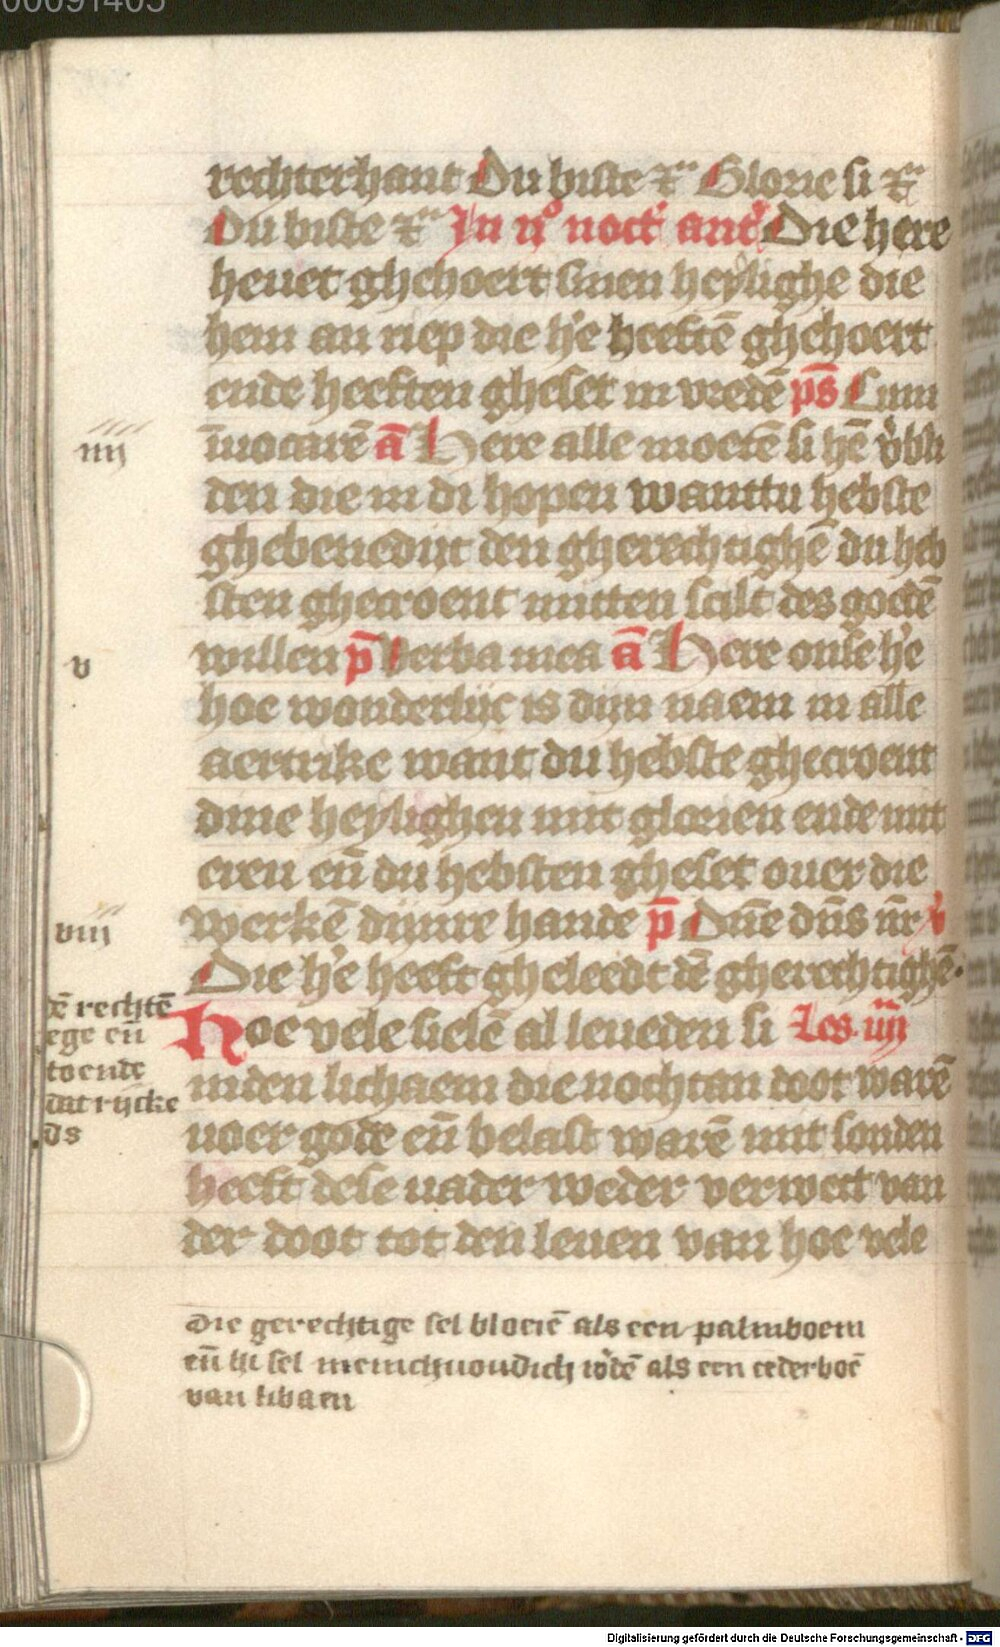 00091405
rechterhant Du biste ⁊c̄ Glorie si ⁊c̄
Du biste ⁊c̄ In ijº noctʼ antʼ Die here
heuet ghehoert sinen heylighe die
hem an riep die hʼe heeftē ghehoert
ende heeften gheset in vredē ps̄ Cum
īuocarē ā Here alle moetē si hē vʼbli
den die in di hopen wanttu hebste
ghebenedijt den gherechtighē du heb
sten ghecroent mitten scilt des goedē
willen p̄ Verba mea ā Here onse hʼe
hoe wonderlijc is dijn naem in alle
aertrike want du hebste ghecroent
dine heylighen mit glorien ende mit
eren en̄ du hebsten gheset ouer die
werkē dijnre hande p̄ Dn̄e dn̄s n̄r vʼ
Die hʼe heeft gheleedt dē gherechtighē.
Hoe vele sielē al leueden si Les. iiij
inden lichaem die nochtan doot warē
voer gode en̄ belast warē mit sonden
heeft dese uader weder verwect van
der doot tot den leuen van hoe vele
iiij
v
viij
dē rechtē
ege en̄
toende
dat rijcke
ds
Die gerechtige sel bloeiē als een palmboem
en̄ hi sel menichuoudich wʼdē als een cederboē
van libaen
Digitalisierung gefördert durch die Deutsche Forschungsgemeinschaft - DFG